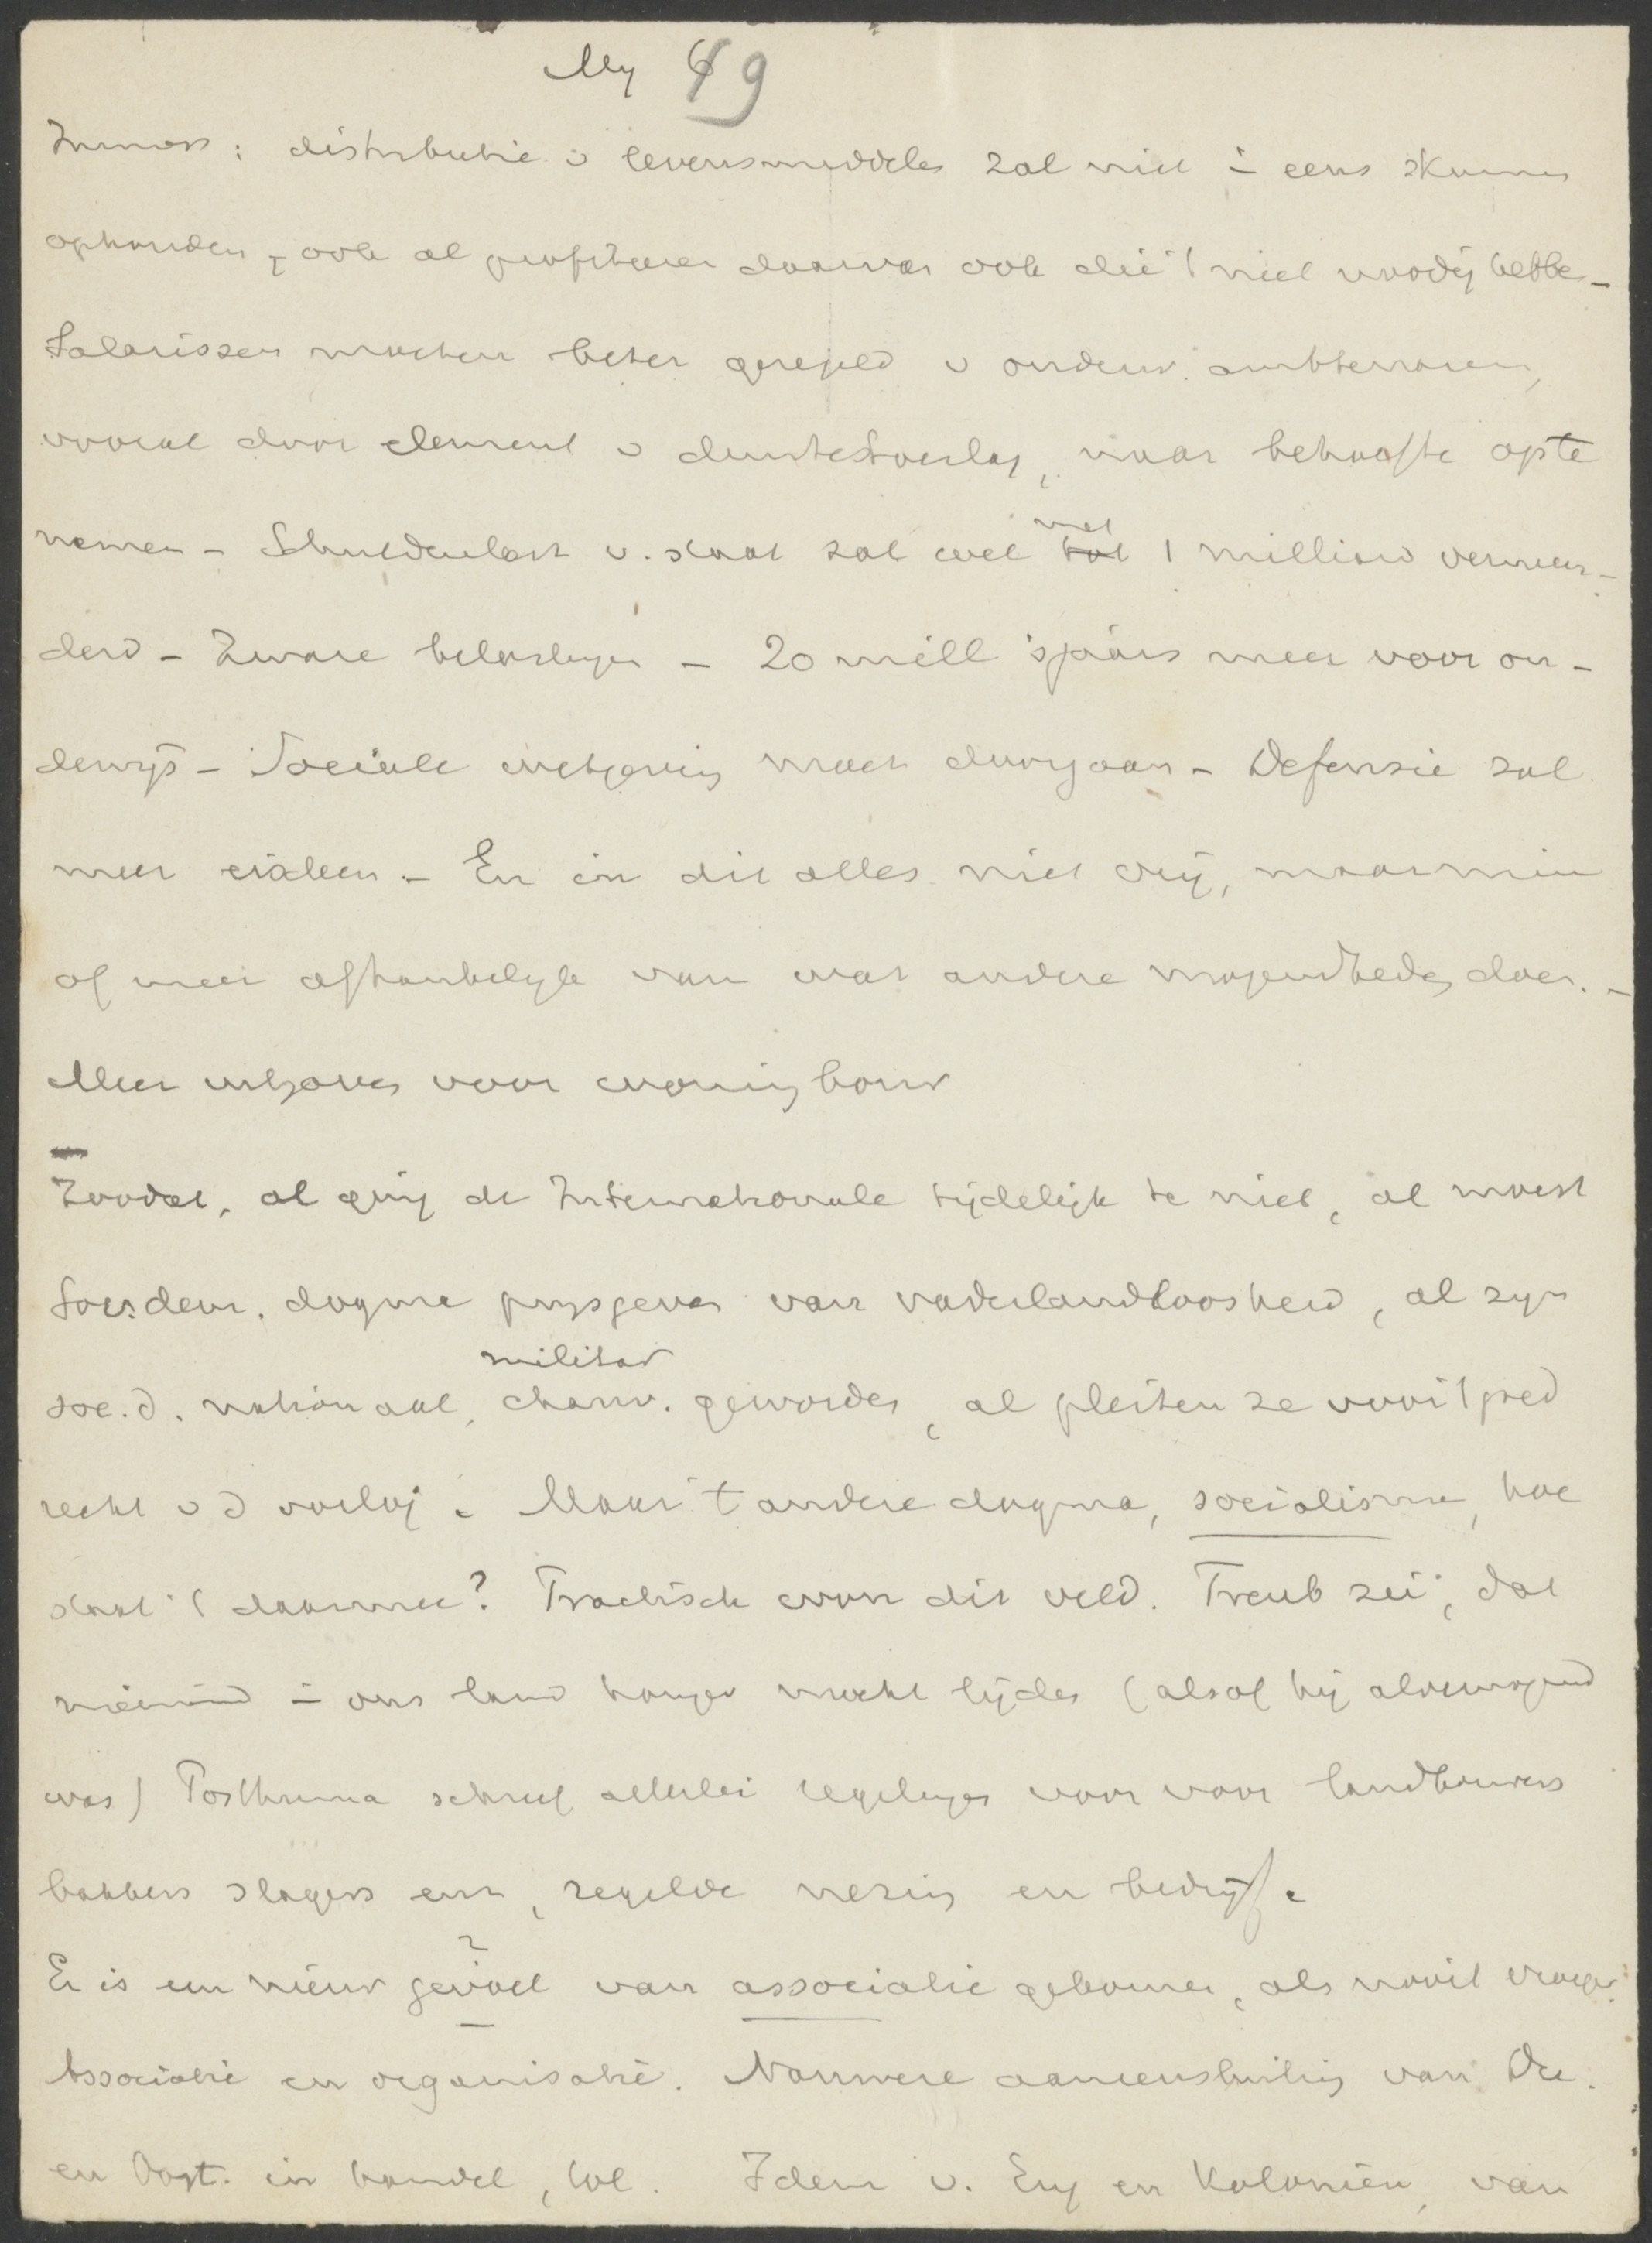 My 69
Immers: distributie v levensmiddelen zal niet i eens kunnen
ophouden, ook al profiteeren daarvan ook die 't niet noodig hebben -
Salarissen moeten beter geregeld v onderw. ambtenaren,
vooral door element v duurtetoeslag, naar behoefte op te
nemen - Schuldenlast v. staat zal wel met 1 milliard vermeer-
derd - Zware belastingen - 20 mill 's jaars meer voor on-
derwijs - Sociale wetgeving moet doorgaan - Defensie zal
meer eischen. - En in dit alles niet vrij, maar min
of meer afhankelijk van wat andere mogendheden doen. -
Meer uitgaven voor woningbouw
Zoodat, al ging de Internationale tijdelijk te niet, al moest
Soc.dem. dogma prijsgeven van vaderlandloosheid, al zijn
militar
soc.d. nationaal, chauv. geworden, al pleiten ze voor 't goed
recht v d oorlog. Maar 't andere dogma, socialisme, hoe
staat 't daarmee? Practisch won dit veld. Treub zei, dat
niemand i ons land honger mocht lijden (alsof hij alvermogend
was) Posthuma schreef allerlei regelingen voor voor landbouwers
bakkers slagers enz, regelde nering en bedrijf.
Er is een nieuw gevoel van associatie gekomen, als nooit vroeger.
Associatie en organisatie. Nauwere aaneensluiting van Du.
en Oost. in handel, tol. Idem v. Eng en Koloniën, van